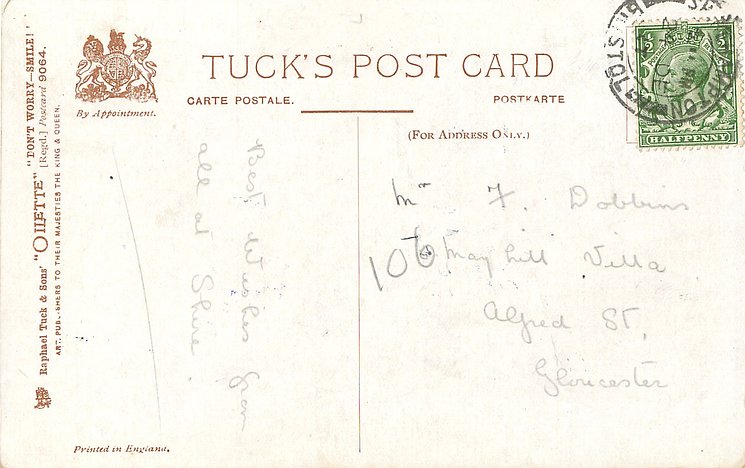 Raphael Tuck & Sons' "OILETTE" "DON'T WORRY—SMILE!"
[Regd.] Postcard 9064.
ART PUBLISHERS TO THEIR MAJESTIES THE KING & QUEEN.
By Appointment.
TUCK'S POST CARD
CARTE POSTALE.
POSTKARTE
(FOR ADDRESS ONLY.)
½ ½
HALFPENNY
Best Wishes from
all at Shire.
Mr F. Dobbins
106 May hill Villa
Alfred St,
Gloucester
Printed in England.